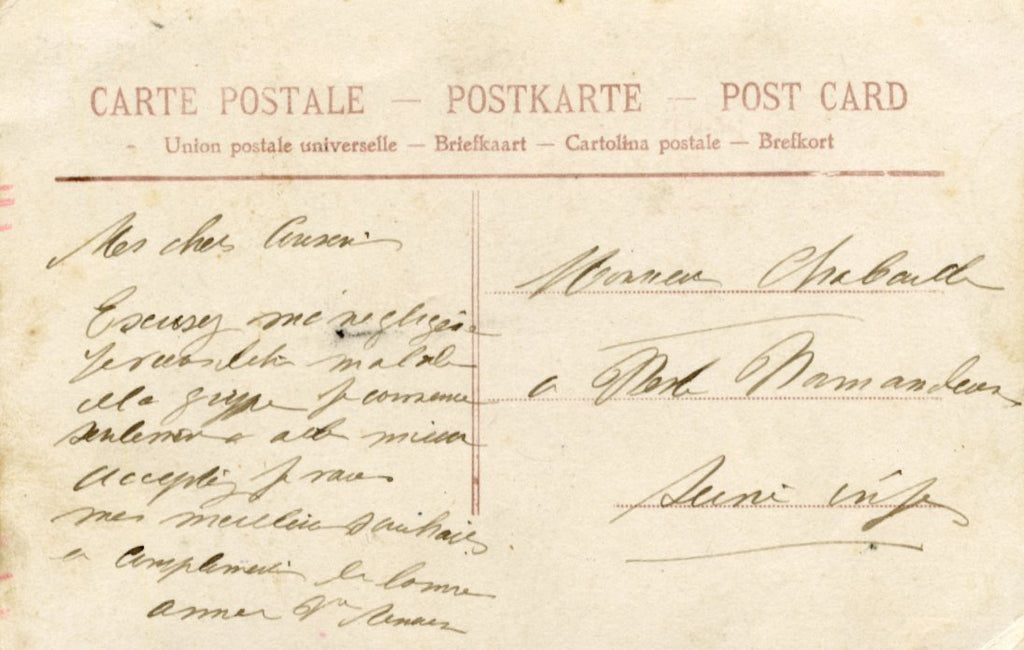 CARTE POSTALE — POSTKARTE — POST CARD
Union postale universelle — Briefkaart — Cartolina postale — Brefkort
Mes chers Cousin
Escusez ma negligence
je viens detre malade
de la grippe je commence
seulement a alle mieux
accepter je vous
mes meilleurs souhaits
et compliments de bonne
annee Vve
Monsieur Chabaud
a Normandeuse
Seine infre